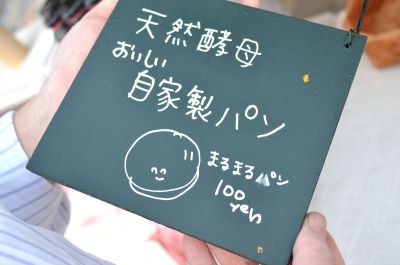 天然酵母
おいしい
自家製パン
まるまるパン
100
yen